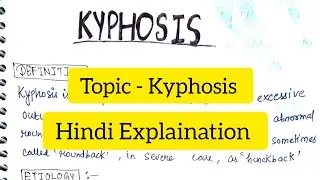 KYPHOSIS
DEFINITI
Kyphosis is excessive
out abnormal
roun sometimes
called 'roundback', in severe case, as 'hunchback'
ETIOLOGY :-
Topic - Kyphosis
Hindi Explaination